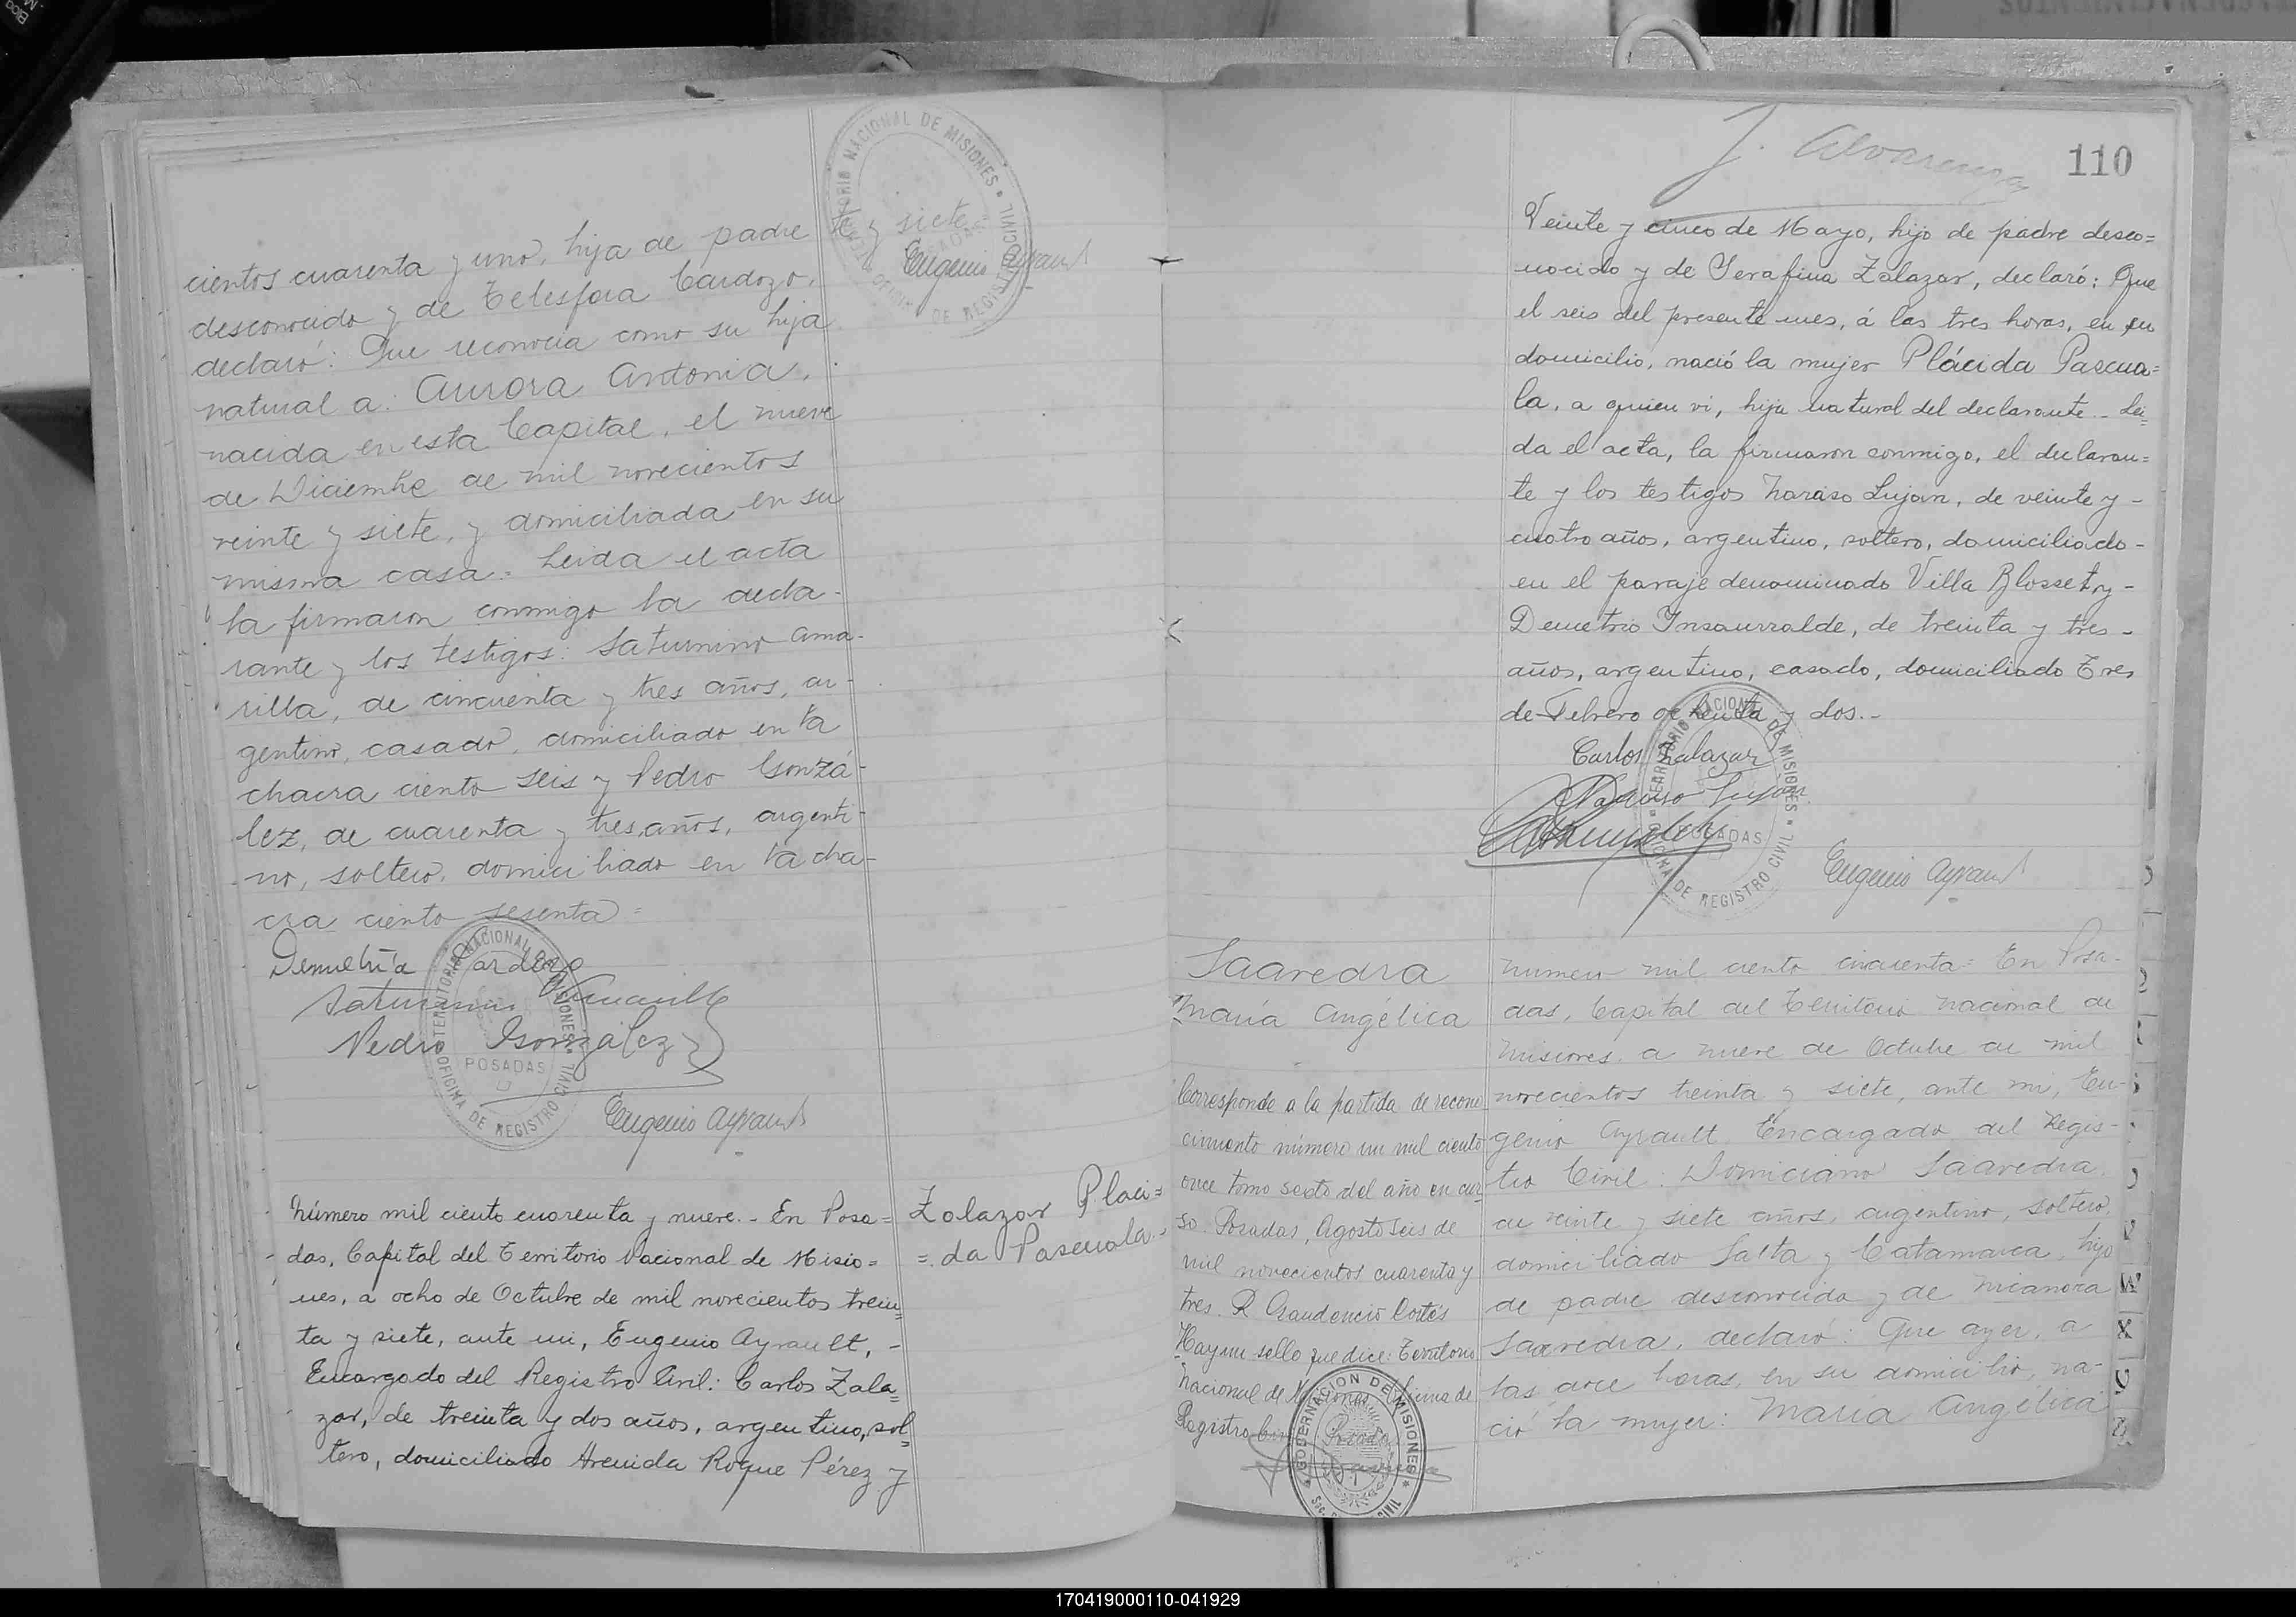 cientos cuarenta y uno, hija de padre
desconocido y de Telesfora Cardozo,
declaró: Que reconocía como su hija
natural a: Aurora Antonia,
nacida en esta Capital, el nueve
de Diciembre de mil novecientos
veinte y siete, y domiciliada en su
misma casa = Leida el acta
la firmaron conmigo la decla-
rante y los testigos: Saturnino Ama-
rilla, de cincuenta y tres años, ar-
gentino, casado, domiciliado en la
chacra ciento seis y Pedro Gonzá-
lez, de cuarenta y tres años, argenti-
no, soltero, domiciliado en la cha-
cra ciento sesenta =
Demetria Cardozo
Saturnino
Pedro González
Eugenio Ayrault
TERRITORIO NACIONAL DE MISIONES
POSADAS
OFICINA DE REGISTRO CIVIL
y siete
Eugenio Ayrault
TERRITORIO NACIONAL DE MISIONES
POSADAS
OFICINA DE REGISTRO CIVIL
Zalazar Placi=
=da Pascuala.-
Número mil ciento cuarenta y nueve.- En Posa=
das, Capital del Territorio Nacional de Misio=
nes, a ocho de Octubre de mil novecientos trein=
ta y siete, ante mi, Eugenio Ayrault, -
Encargado del Registro Civil: Carlos Zala=
zar, de treinta y dos años, argentino, sol=
tero, domiciliado Avenida Roque Pérez y
J. Alvarenga
110
Veinte y cinco de Mayo, hijo de padre desco=
nocido y de Serafina Zalazar, declaró: Que
el seis del presente mes, á las tres horas, en su
domicilio, nació la mujer Plácida Pascua=
la, a quien vi, hija natural del declarante - Lei=
da el acta, la firmaron conmigo, el declaran=
te y los testigos Naraiso Lujan, de veinte y -
cuatro años, argentino, soltero, domiciliado -
en el paraje denominado Villa Blosset y -
Demetrio Insaurralde, de treinta y tres -
años, argentino, casado, domiciliado Tres
de Febrero ochenta y dos.-
Carlos Zalazar
Lujan
Eugenio Ayrault
TERRITORIO NACIONAL DE MISIONES
POSADAS
OFICINA DE REGISTRO CIVIL
Saavedra
María Angélica
Corresponde a la partida de recono
cimiento número un mil ciento
once tomo sexto del año en cur-
so. Posadas, Agosto seis de
mil novecientos cuarenta y
tres. R Gaudencio Cortés
Hay un sello que dice: Territorio
Nacional de Misiones Oficina de
Registro Civil Posadas
GOBERNACION DE MISIONES
Número mil ciento cincuenta = En Posa-
das, Capital del Territorio Nacional de
Misiones, a nueve de Octubre de mil
novecientos treinta y siete, ante mi, Eu-
genio Ayrault Encargado del Regis-
tro Civil: Domiciano Saavedra,
de veinte y siete años, argentino, soltero,
domiciliado Salta y Catamarca, hijo
de padre desconocido y de Nicanora
Saavedra, declaró: Que ayer, a
las doce horas, en su domicilio, na-
ció la mujer: María Angélica
170419000110-041929